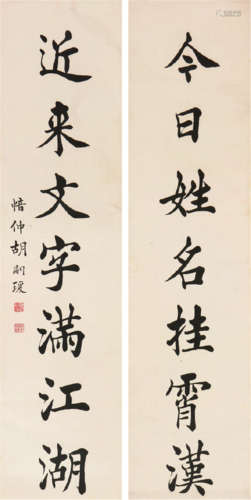 今日姓名挂霄漢
近来文字满江湖
愔仲胡嗣瑗